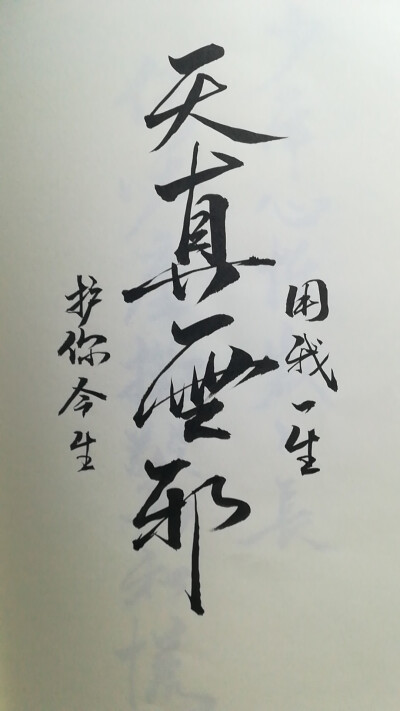 用我一生
天真無邪
护你今生